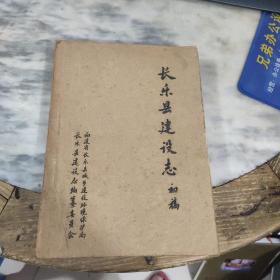 长乐县建设志
初稿
福建省长乐县城乡建设环境保护局
长乐县建设志编纂委员会
兄弟办公设